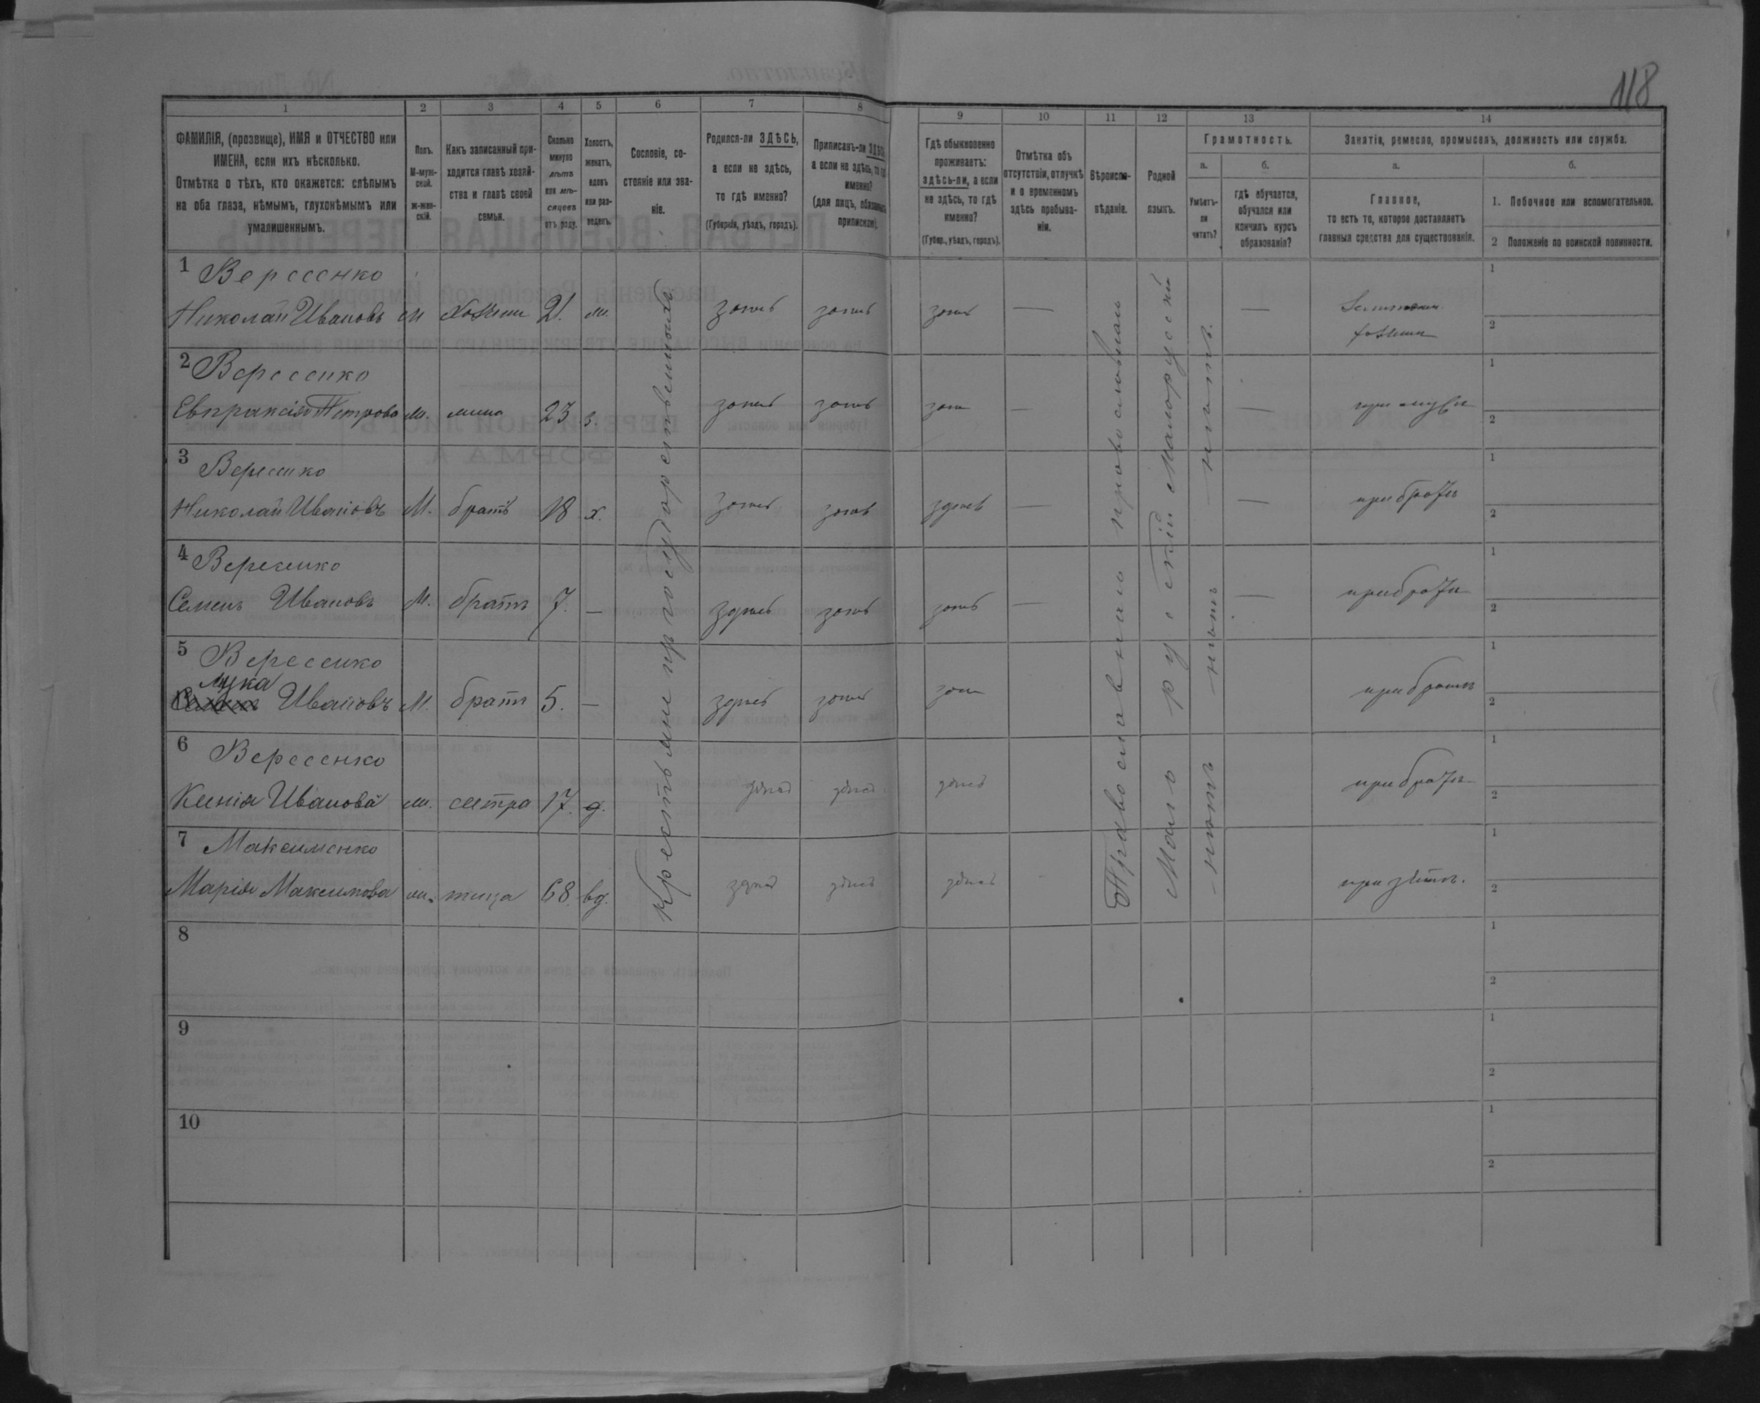 118
1 2 3 4 5 6 7 8 9 10 11 12 13 14
ФАМИЛІЯ, (прозвище), ИМЯ и ОТЧЕСТВО или ИМЕНА, если ихъ нѣсколько.
Отмѣтка о тѣхъ, кто окажется: слѣпымъ на оба глаза, нѣмымъ, глухонѣмымъ или умалишеннымъ.
Полъ.
М-мужской.
ж-женскій.
Какъ записанный приходится главѣ хозяйства и главѣ своей семьи.
Сколько минуло лѣтъ или мѣсяцевъ отъ роду.
Холостъ, женатъ, вдовъ или разведенъ.
Сословіе, состояніе или званіе.
Родился-ли ЗДѢСЬ, а если не здѣсь, то гдѣ именно?
(Губернія, уѣздъ, городъ).
Приписанъ-ли
а если не здѣсь, то гдѣ именно?
(для лицъ, обязанныхъ припискою).
Гдѣ обыкновенно проживаетъ: здѣсь-ли, а если не здѣсь, то гдѣ именно?
(Губер., уѣздъ, городъ).
Отмѣтка объ отсутствіи, отлучкѣ и о временномъ здѣсь пребываніи.
Вѣроисповѣданіе.
Родной языкъ.
Грамотность.
а.
Умѣетъ-ли читать?
б.
гдѣ обучается, обучался или кончилъ курсъ образованія?
Занятіе, ремесло, промыселъ, должность или служба.
а.
Главное,
то есть то, которое доставляетъ главныя средства для существованія.
б.
1. Побочное или вспомогательное.
2 Положеніе по воинской повинности.
1 Вересенко
Николай Ивановъ м хозяин 21. ж. здѣсь здѣсь здѣсь —
2 Вересенко
Евпраксія Петрова ж. жена 23 з здѣсь здѣсь здѣсь — — при мужѣ
3 Вересенко
Николай Ивановъ М. братъ 18 х. здѣсь здѣсь здѣсь — — при братѣ
4 Вересенко
Семенъ Ивановъ М. братъ 7. — здѣсь здѣсь здѣсь — — при братѣ
5 Вересенко
Лука Ивановъ М. братъ 5. — здѣсь здѣсь здѣсь при братѣ
6 Вересенко
Ксенія Иванова ж. сестра 17. д. здѣсь здѣсь здѣсь при братѣ
7 Максименко
Марія Максимова ж. теща 68. вд. здѣсь здѣсь здѣсь при зятѣ.
Крестьяне
Православнаго
Мало
нѣтъ нѣтъ нѣтъ.
8
9
10